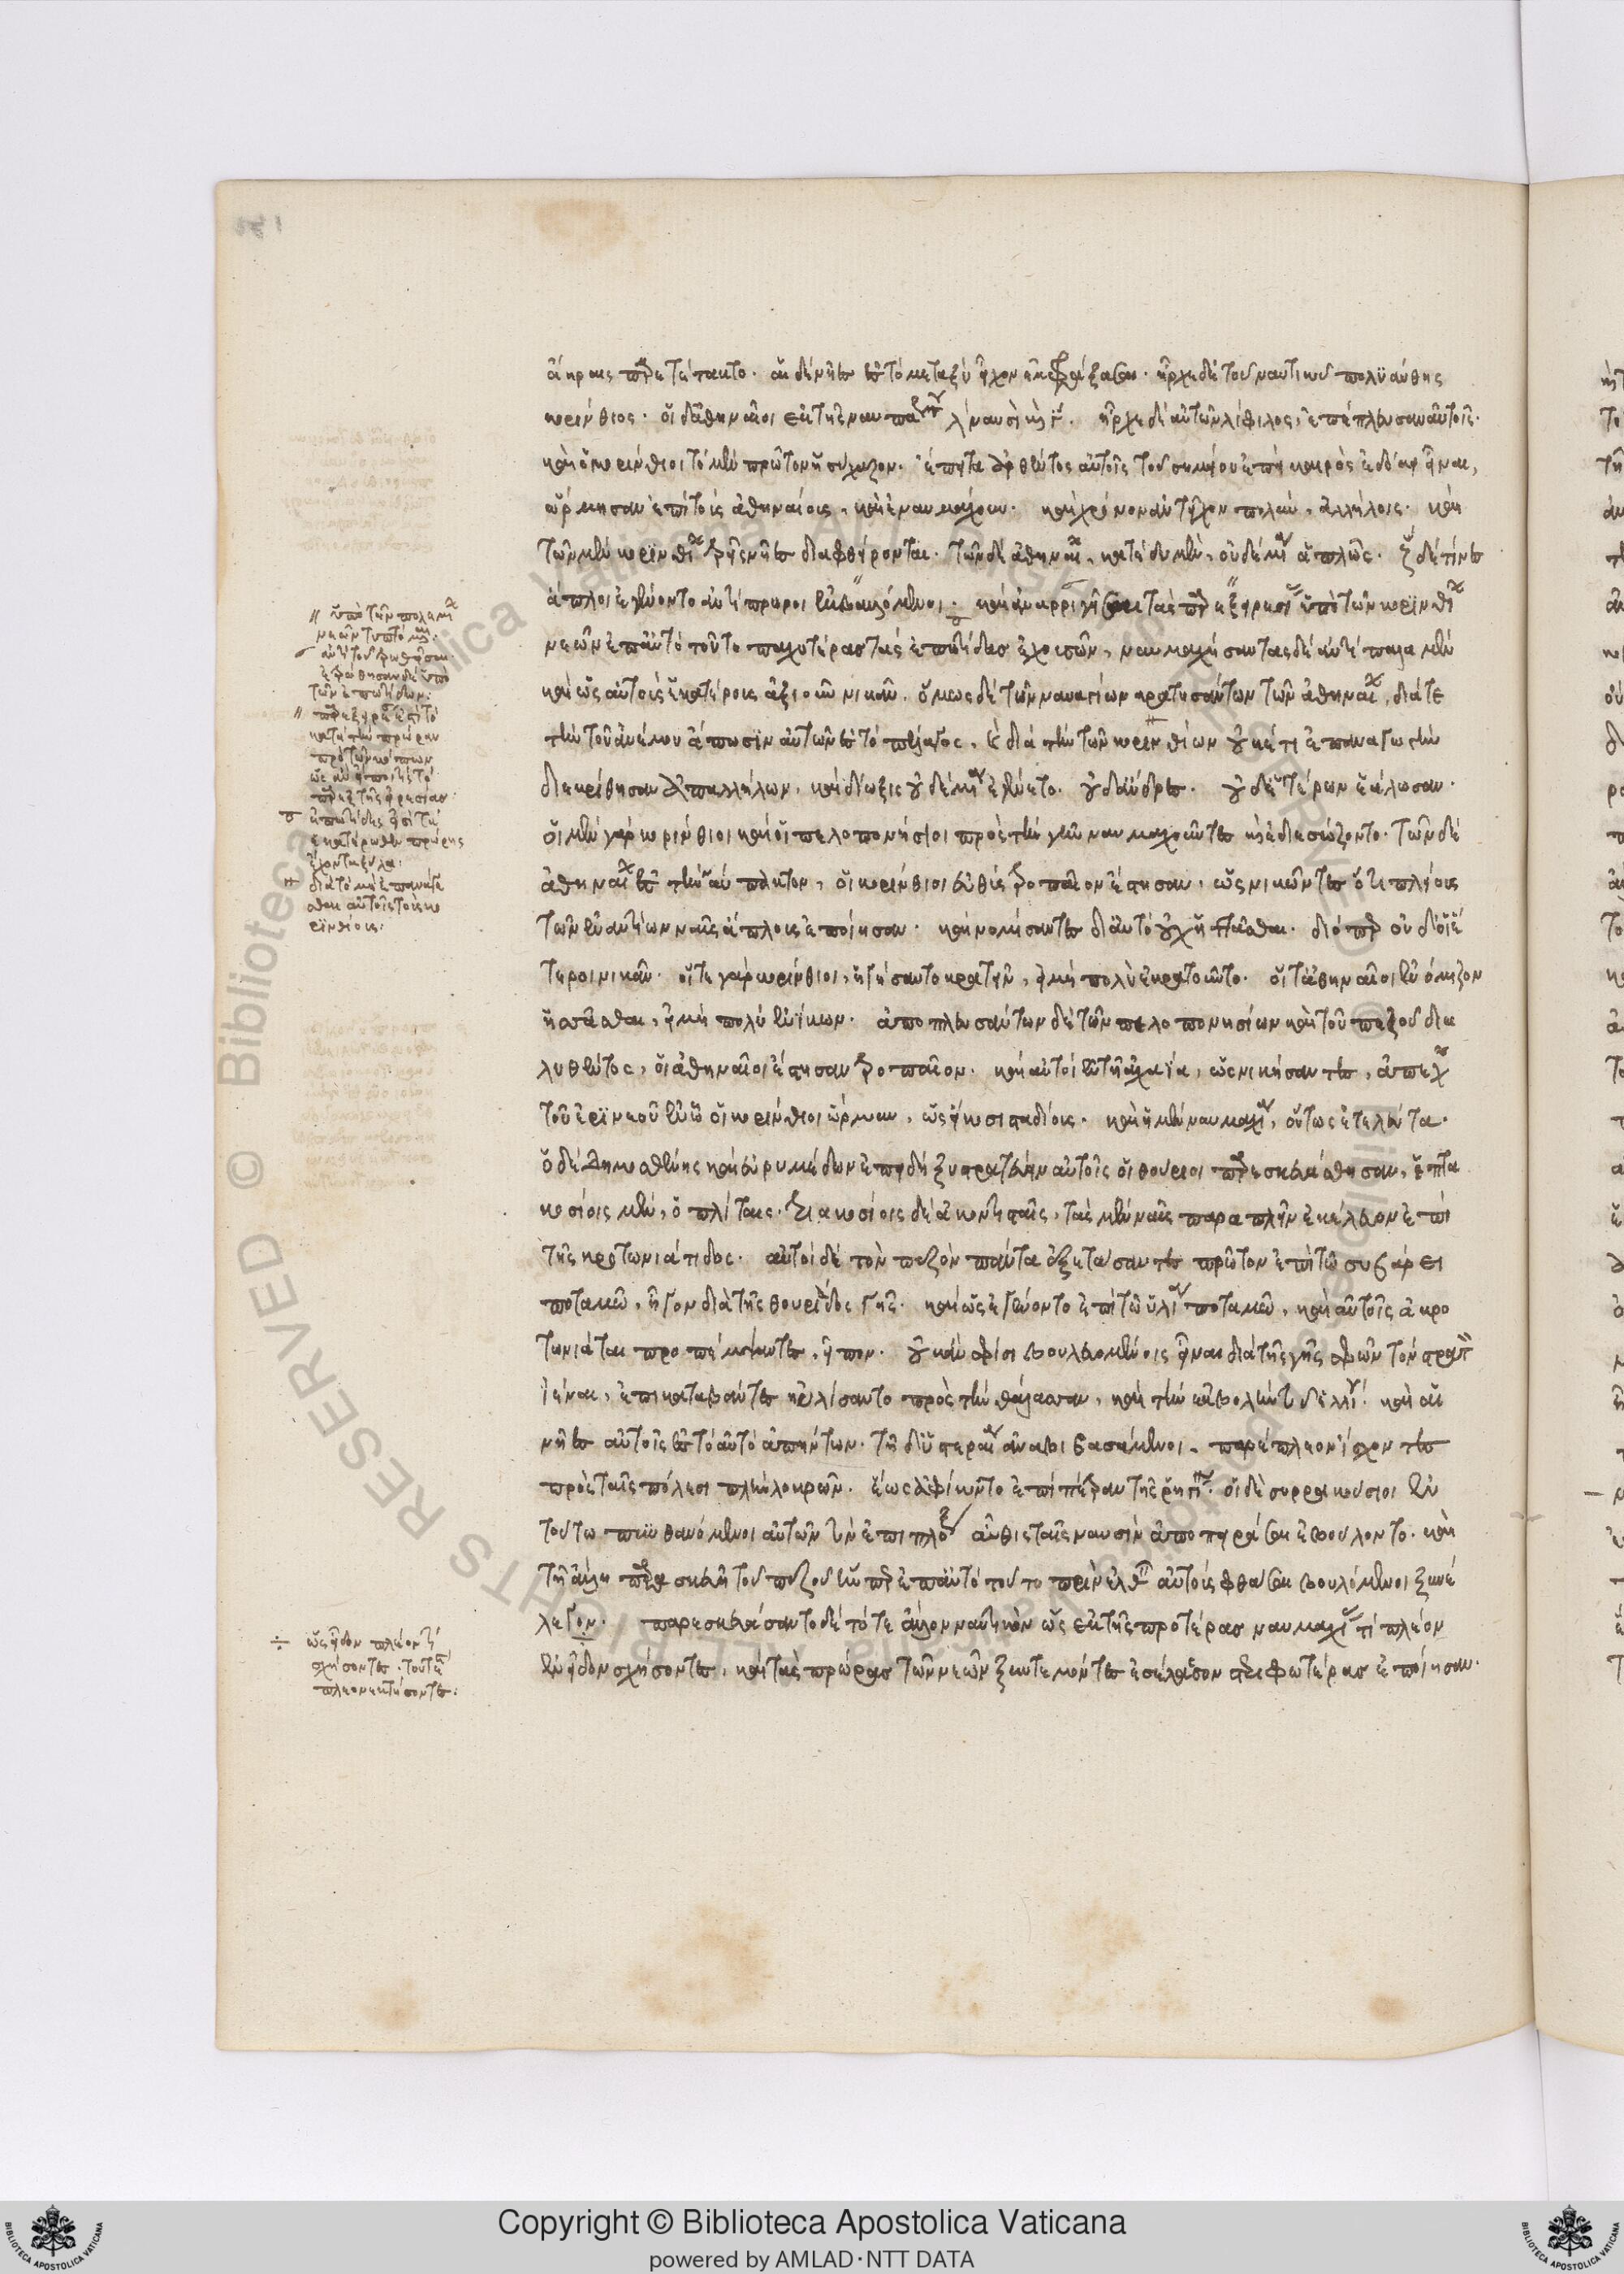 ἄκραις παρετέτακτο· αἱ δὲ νῆες τὸ μεταξὺ εἶχον ἐμφράξασαι· ἦρχε δὲ τοῦ ναυτικοῦ πολυάνθης
κορίνθιος· οἱ δ' ἀθηναῖοι ἐκ τῆς ναυπάκτου λ΄ ναυσὶ καὶ γ΄. ἦρχε δὲ αὐτῶν δίφιλος, ἐπέπλευσαν αὐτοῖς·
καὶ οἱ κορίνθιοι τὸ μὲν πρῶτον ἡσύχαζον· ἔπειτα ἀρθέντος αὐτοῖς τοῦ σημείου ἐπεὶ καιρὸς ἐδόκει εἶναι,
ὥρμησαν ἐπὶ τοὺς ἀθηναίους, καὶ ἐναυμάχουν· καὶ χρόνον ἀντεῖχον πολὺν, ἀλλήλοις· καὶ
τῶν μὲν κορινθίων τρεῖς νῆες διαφθείρονται· τῶν δὲ ἀθηναίων, κατέδυ μὲν, οὐδεμία ἁπλῶς· ζ δέ τινες
ἄπλοι ἐγένοντο ἀντίπρῳροι ἐμβαλλόμεναι· καὶ ἀναρραγεῖσαι τὰς παρεξειρεσίας ὑπὸ τῶν κορινθίων
νεῶν ἐπ' αὐτὸ τοῦτο παχυτέρας τὰς ἐπωτίδας ἐχουσῶν, ναυμαχήσαντες δὲ ἀντίπαλα μὲν
καὶ ὡς αὐτοὺς ἑκατέρους ἀξιοῦν νικᾶν· ὅμως δὲ τῶν ναυαγίων κρατησάντων τῶν ἀθηναίων, διά τε
τὴν τοῦ ἀνέμου ἄπωσιν αὐτῶν ἐς τὸ πέλαγος, καὶ διὰ τὴν τῶν κορινθίων οὐκέτι ἐπαναγωγὴν
διεκρίθησαν ἀπ' ἀλλήλων, καὶ δίωξις οὐδεμία ἐγένετο· οὐδ' ἄνδρες· οὐδετέρων ἑάλωσαν·
οἱ μὲν γὰρ κορίνθιοι καὶ οἱ πελοποννήσιοι πρὸς τῇ γῇ ναυμαχοῦντες καὶ διεσώζοντο· τῶν δὲ
ἀθηναίων ἐς τὴν ναύπακτον, οἱ κορίνθιοι εὐθὺς τροπαῖον ἔστησαν, ὡς νικῶντες ὅτι πλείους
τῶν ἐναντίων ναῦς ἄπλους ἐποίησαν· καὶ νομίσαντες δι' αὐτὸ οὐχ ἡττᾶσθαι· διόπερ οὐδ' οἱ ἕ
τεροι νικᾶν· οἵ τε γὰρ κορίνθιοι, ἡγήσαντο κρατεῖν, εἰ μὴ πολὺ ἐκρατοῦντο· οἵ τ' ἀθηναῖοι ἐνόμιζον
ἡσσᾶσθαι, εἰ μὴ πολὺ ἐνίκων· ἀποπλευσάντων δὲ τῶν πελοποννησίων καὶ τοῦ πεζοῦ δια
λυθέντος, οἱ ἀθηναῖοι ἔστησαν τροπαῖον· καὶ αὐτοὶ ἐν τῇ ἀχαΐα, ὡς νικήσαντες, ἀπέχον
τοῦ ἐρινεοῦ ἐν ᾧ οἱ κορίνθιοι ὥρμουν, ὡς εἴκοσι σταδίους· καὶ ἡ μὲν ναυμαχία, οὕτως ἐτελεύτα·
ὁ δὲ δημοσθένης καὶ εὐρυμέδων ἐπειδὴ ξυστρατεύειν αὐτοῖς οἱ θούριοι παρεσκευάσθησαν, ἑπτα
κοσίοις μὲν, ὁπλίταις· τριακοσίοις δὲ ἀκοντισταῖς, τὰς μὲν ναῦς παραπλεῖν ἐκέλευον ἐπὶ
τῆς κροτωνιάτιδος· αὐτοὶ δὲ τὸν πεζὸν πάντα ἐξετάσαντες πρῶτον ἐπὶ τῷ συβάρει
ποταμῷ, ἦγον διὰ τῆς θουριάδος γῆς· καὶ ὡς ἐγένοντο ἐπὶ τῷ ὑλίᾳ ποταμῷ, καὶ αὐτοῖς οἱ κρο
τωνιάται προπέμψαντες, εἶπον· οὐκ ἂν σφίσι βουλευομένοις εἶναι διὰ τῆς γῆς σφῶν τὸν στρατὸν
ἰέναι, ἐπικαταβάντες ηὐλίσαντο πρὸς τὴν θάλασσαν, καὶ τὴν ἐκβολὴν τοῦ ὑλίου· καὶ αἱ
νῆες αὐτοῖς ἐς τὸ αὐτὸ ἀπήντων· τῇ δ' ὑστεραίᾳ ἀναβιβασάμενοι, παρέπλεον ἴσχοντες
πρὸς ταῖς πόλεσι πλὴν λοκρῶν· ἕως ἀφίκοντο ἐπὶ πέτραν τῆς ῥηγίνης· οἱ δὲ συρρακούσιοι ἐν
τούτω πυνθανόμενοι αὐτῶν τὸν ἐπίπλουν αὖθις ταῖς ναυσὶν ἀποπειρᾶσαι ἐβούλοντο· καὶ
τῇ ἄλλῃ παρασκευῇ τοῦ πεζοῦ ἥνπερ ἐπ' αὐτὸ τοῦτο πρὶν ἐλθεῖν αὐτοὺς φθάσαι βουλόμενοι ξυνέ
λεγον· παρεσκευάσαντο δὲ τό τε ἄλλο ναυτικὸν ὡς ἐκ τῆς προτέρας ναυμαχίας τὶ πλέον
ἐνεῖδον σχήσοντες, καὶ τὰς πρώρας τῶν νεῶν ξυντεμόντες ἐς ἔλασσον στεριφωτέρας ἐποίησαν·
ὑπὸ τῶν πολεμίων
νεῶν τυπτόμεναι·
ἀντὶ τοῦ ῥαγεῖσαι·
ἐτρώθησαν δὲ ὑπὸ
τῶν ἐπωτίδων:
παρεξειρεσία ἐστὶ τὸ
κατὰ τὴν πρώραν
πρὸ τῶν κωπῶν
ὡς ἂν εἴποι τις τὸ
πάρεξ τῆς εἰρεσίας·
ἐπωτίδες εἰσὶ τὰ
ἑκατέρωθεν πρώρης
ἐξέχοντα ξύλα:
διὰ τὸ μὴ ἐπανάγε
σθαι αὐτοῖς τοὺς κο
ρινθίους:
ὡς εἶδον πλέον τί
σχήσοντες· τουτέστι
πλεονεκτήσοντες:
Copyright © Biblioteca Apostolica Vaticana
powered by AMLAD·NTT DATA